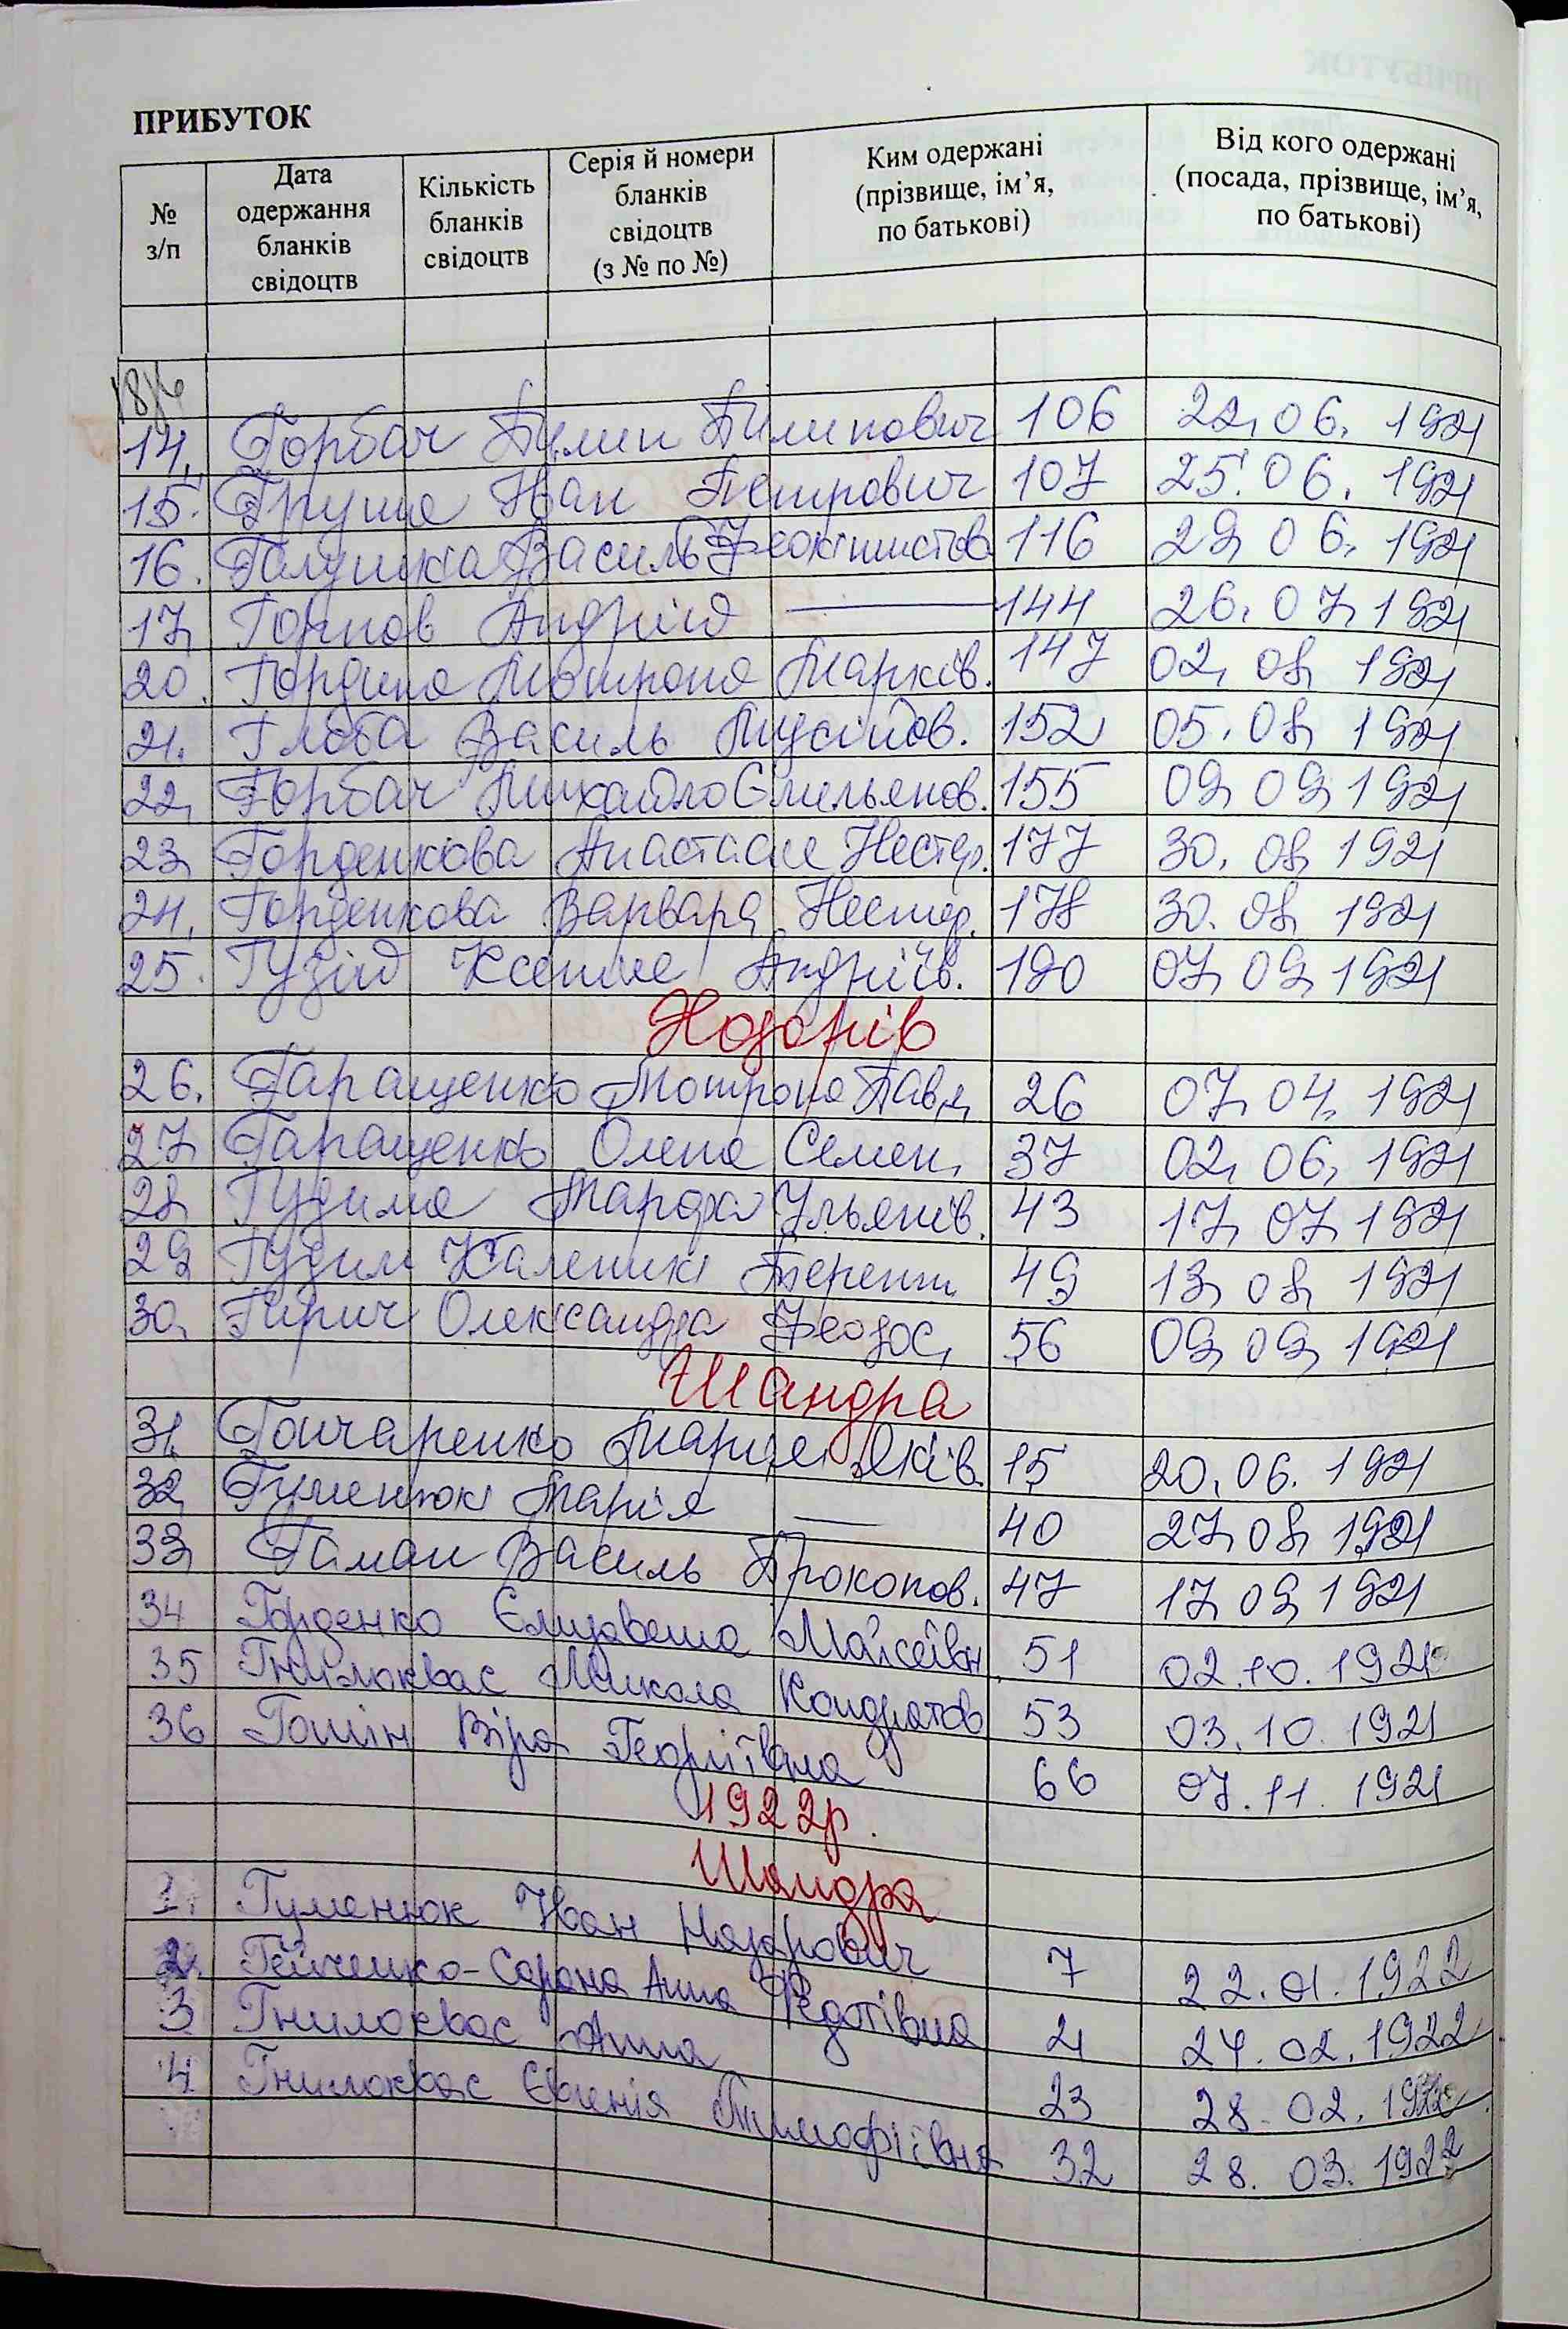 ПРИБУТОК
№ з/п
Дата одержання бланків свідоцтв
Кількість бланків свідоцтв
Серія й номери бланків свідоцтв (з № по №)
Ким одержані (прізвище, ім’я, по батькові)
Від кого одержані (посада, прізвище, ім’я, по батькові)
14. Горбач Пилип Пилипович 106 22.06.1921
15. Груша Іван Петрович 107 25.06.1921
16. Галушка Василь Феоктистов 116 29.06.1921
17. Андрій — 144 26.07.1921
20. Гордина Мотрона Марків. 147 02.08.1921
21. Глоба Василь Мусійов. 152 05.08.1921
22. Горбач Михайло Омельянов. 155 09.09.1921
23. Горденкова Анастасія Нестер. 177 30.08.1921
24. Горденкова Варвара Нестер. 178 30.08.1921
25. Гузій Ксенія Андріїв. 190 07.09.1921
Нозарів
26. Гаращенко Мотрона Павл. 26 07.04.1921
27. Гаращенко Олена Семен. 37 02.06.1921
28. Гудима Марфа Ульянів. 43 17.07.1921
29. Гудим Каленик Терент. 49 13.08.1921
30. Гирич Олександра Феодос. 56 09.09.1921
Шандра
31. Гончаренко Марія Яків. 15 20.06.1921
32. Гуменюк Марія — 40 27.08.1921
33. Гаман Василь Прокопов. 47 17.09.1921
34 Горденко Єлизавета Мойсеївн. 51 02.10.1921
35 Гнилоквас Микола Кондратов 53 03.10.1921
36 Гошін Віра Георгіївна 66 07.11.1921
1922р.
Шандра
1. Гуменюк Іван Назарович 7 22.01.1922
2. Гейченко-Сорока Анна Федотівна 21 24.02.1922
3 Гнилоквас Анна 23 28.02.1922
4 Гнилоквас Євгенія Тимофіївна 32 28.03.1922